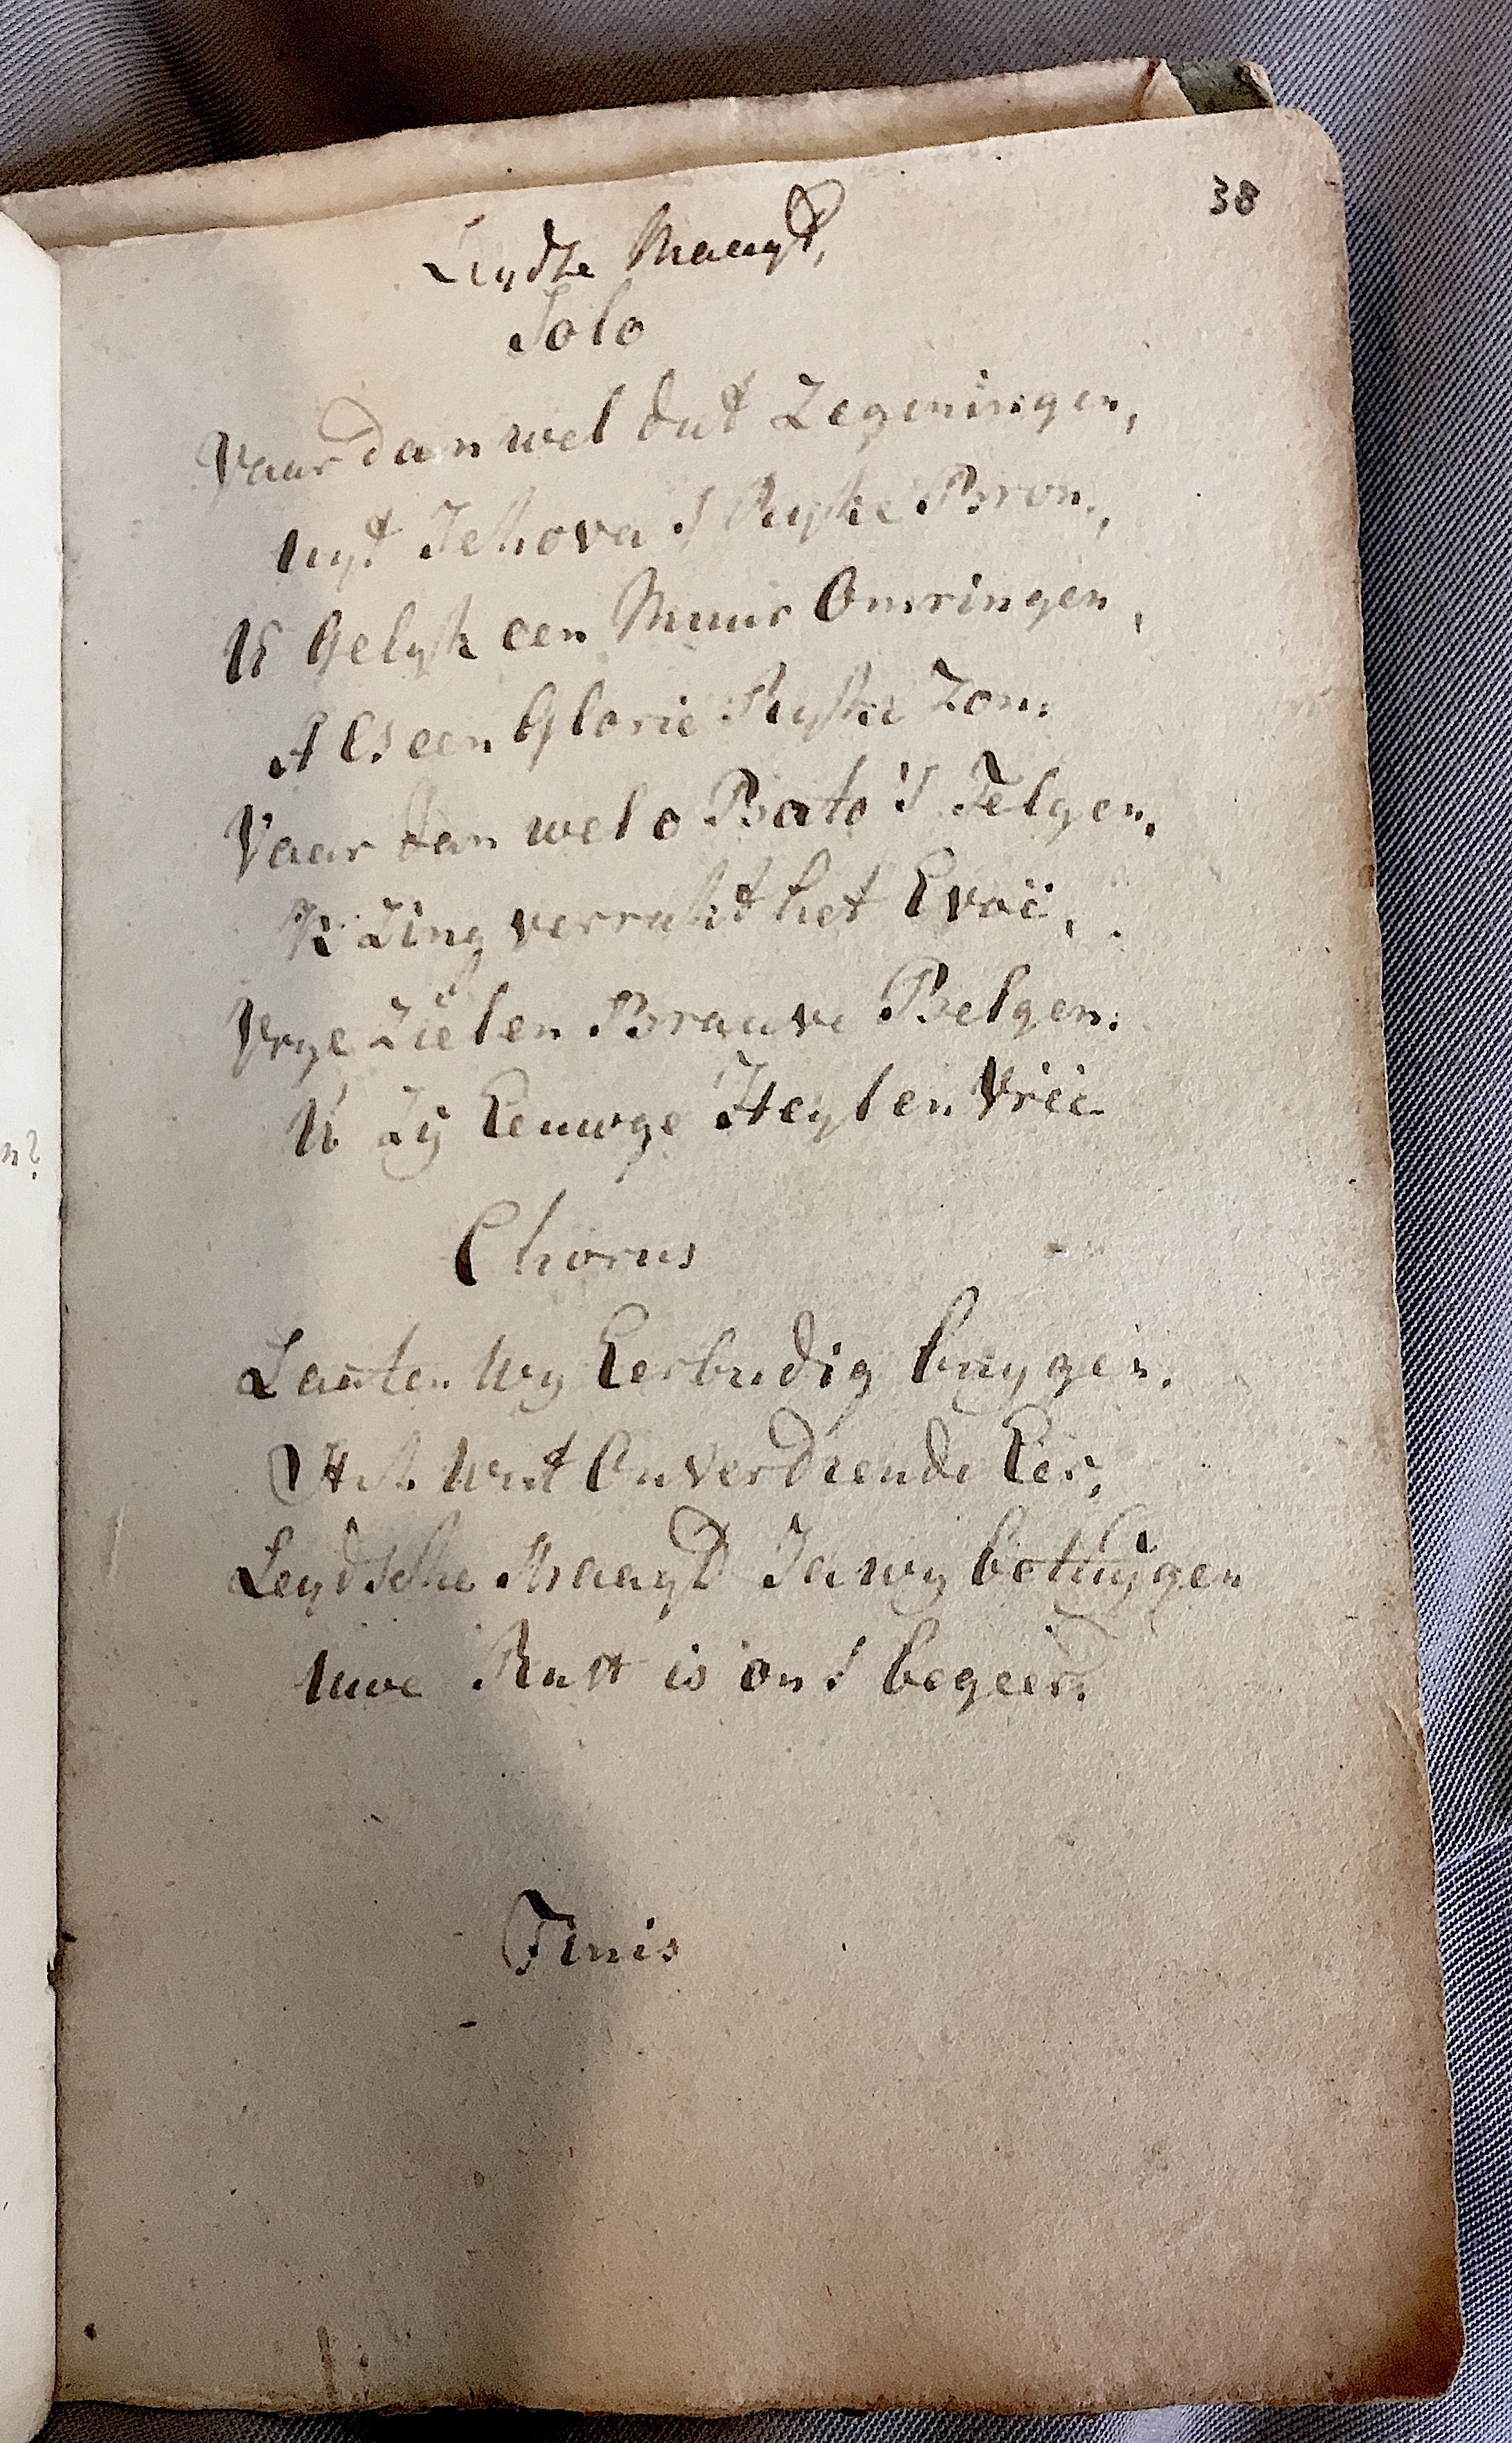 38
Leydze Maagd,
Solo
Vaar dan wel dat Zegeningen,
uyt Jehova's Ryke Bron,
U Gelyk een Muur Omringen,
Als een Glorie Ryke Zon:
Vaar dan wel o Bato's Telgen,
K Zing verrukt het Evoë,
Vrye Zielen Brauve Belgen:
U Zy Eeuwge Heyl en Vreê
Chorus
Laaten Wy Eerbiedig buygen,
Wat Onverdiende Eer,
Leydsche Maagd Ja wy betuygen
Uwe Rust is ons begeer.
Finis
n?